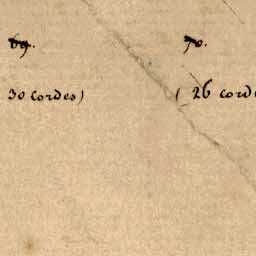 69. 70.
30 cordes) ( 26 corde